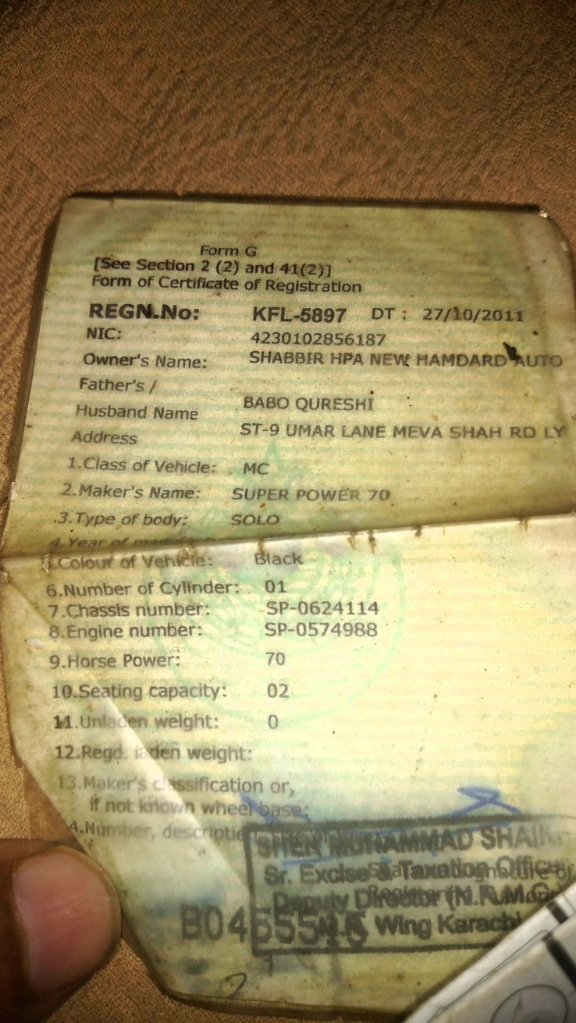 Form G
[See Section 2 (2) and 41(2)]
Form of Certificate of Registration
REGN.No: KFL-5897 DT : 27/10/2011
NIC: 4230102856187
Owner's Name: SHABBIR HPA NEW HAMDARD AUTO
Father's /
Husband Name BABO QURESHI
Address ST-9 UMAR LANE MEVA SHAH RD LY
1.Class of Vehicle: MC
2.Maker's Name: SUPER POWER 70
3.Type of body: SOLO
4.Year of
Colour of Vehicle: Black
6.Number of Cylinder: 01
7.Chassis number: SP-0624114
8.Engine number: SP-0574988
9.Horse Power: 70
10.Seating capacity: 02
11.Unladen weight: 0
12.Regd. laden weight:
13.Maker's classification or,
if not known wheel base:
4.Number,
SHER MUHAMMAD SHAIK
Sr. Excise & Taxation Officer
Deputy Director (N.R.M.
Wing Karachi